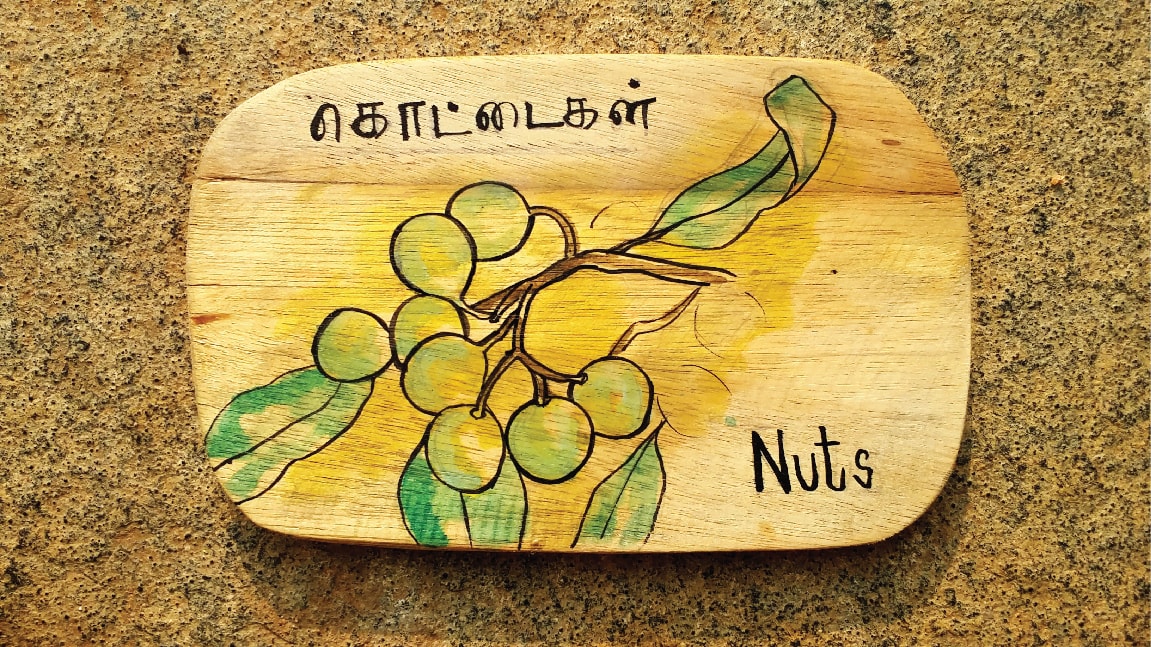 கொட்டைகள்
Nuts